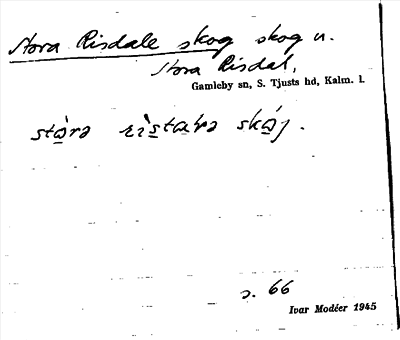 Stora Risdale skog skog u.
Stora Risdal,
Gamleby sn, S. Tjusts hd, Kalm. l.
skój.
s. 66
Ivar Modéer 1945